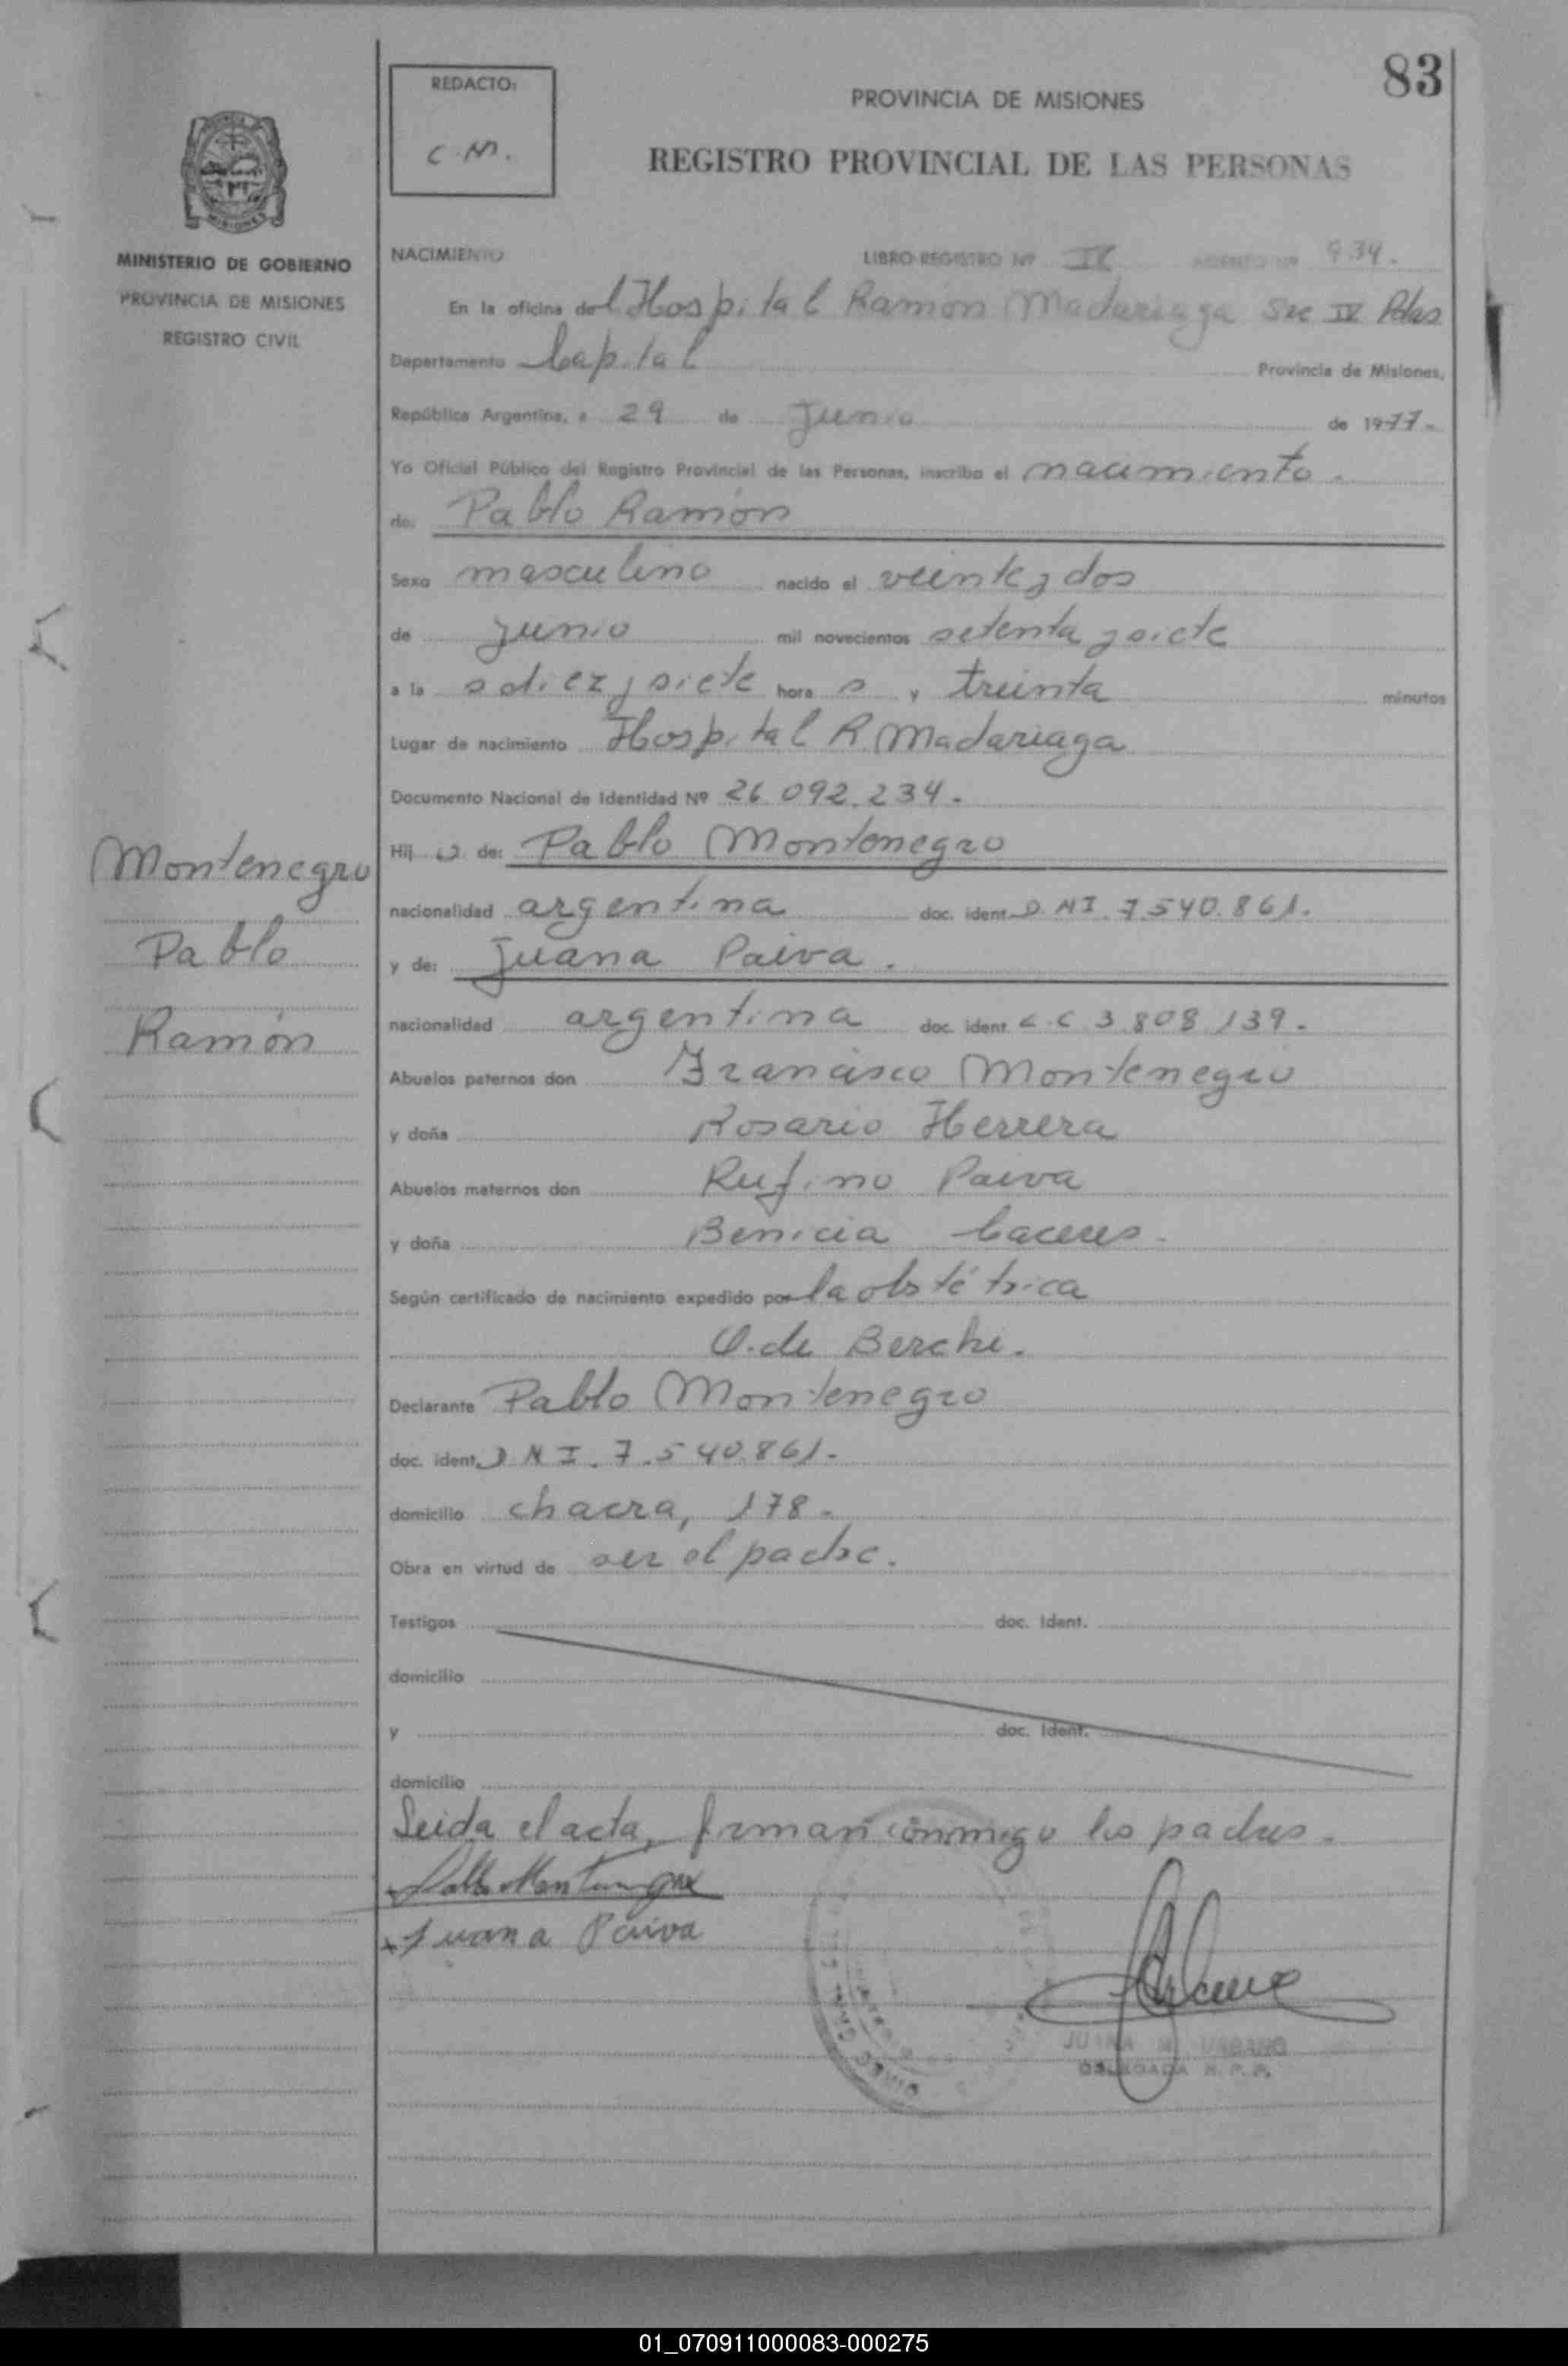 83
REDACTO:
C.M.
PROVINCIA DE MISIONES
REGISTRO PROVINCIAL DE LAS PERSONAS
MINISTERIO DE GOBIERNO
PROVINCIA DE MISIONES
REGISTRO CIVIL
NACIMIENTO LIBRO REGISTRO Nº ASIENTO Nº 934.
En la oficina del Hospital Ramón Madariaga Sec IV Pdas
Departamento Capital Provincia de Misiones,
República Argentina, a 29 de Junio de 1977-
Yo Oficial Público del Registro Provincial de las Personas, inscribo el nacimiento.
de: Pablo Ramón
Sexo masculino nacido el veinte y dos
de junio mil novecientos setenta y siete
a la s diez y siete hora s y treinta minutos
Lugar de nacimiento Hospital R. Madariaga
Documento Nacional de Identidad Nº 26.092.234.
Hij o de: Pablo Montenegro
nacionalidad argentina doc. ident. D.N.I. 7.540.861.
y de: Juana Paiva.
nacionalidad argentina doc. ident. L.C 3.808.139.
Abuelos paternos don Francisco Montenegro
y doña Rosario Herrera
Abuelos maternos don Rufino Paiva
y doña Benicia Caceres.
Según certificado de nacimiento expedido por la obstétrica
O. de Berchi.
Declarante Pablo Montenegro
doc. ident. D.N.I. 7.540.861.
domicilio chacra, 178.
Obra en virtud de ser el padre.
Testigos doc. Ident.
domicilio
y doc. Ident.
domicilio
Leida el acta, firman conmigo los padres.
Pablo Montenegro
x Juana Paiva
JUANA M. URBANO
DELEGADA R. P. P.
Montenegro
Pablo
Ramón
01_070911000083-000275